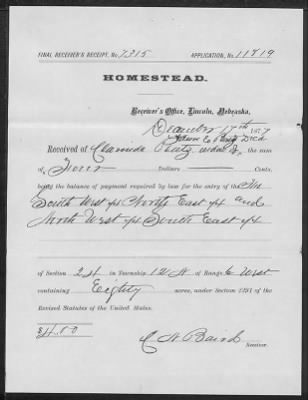 FINAL RECEIVER'S RECEIPT, No. 7315 APPLICATION, No. 11819
HOMESTEAD.
Receiver's Office, Lincoln, Nebraska,
December 17th 1877
Received of the sum
of Four Dollars Cents,
being the balance of payment required by law for the entry of the
South West 1/4 North East 1/4 and
North West 1/4 South East 1/4
of Section 24 in Township 12 N of Range 6 West
containing Eighty acres, under Section 2291 of the
Revised Statutes of the United States.
$4.00
Baird
Receiver.